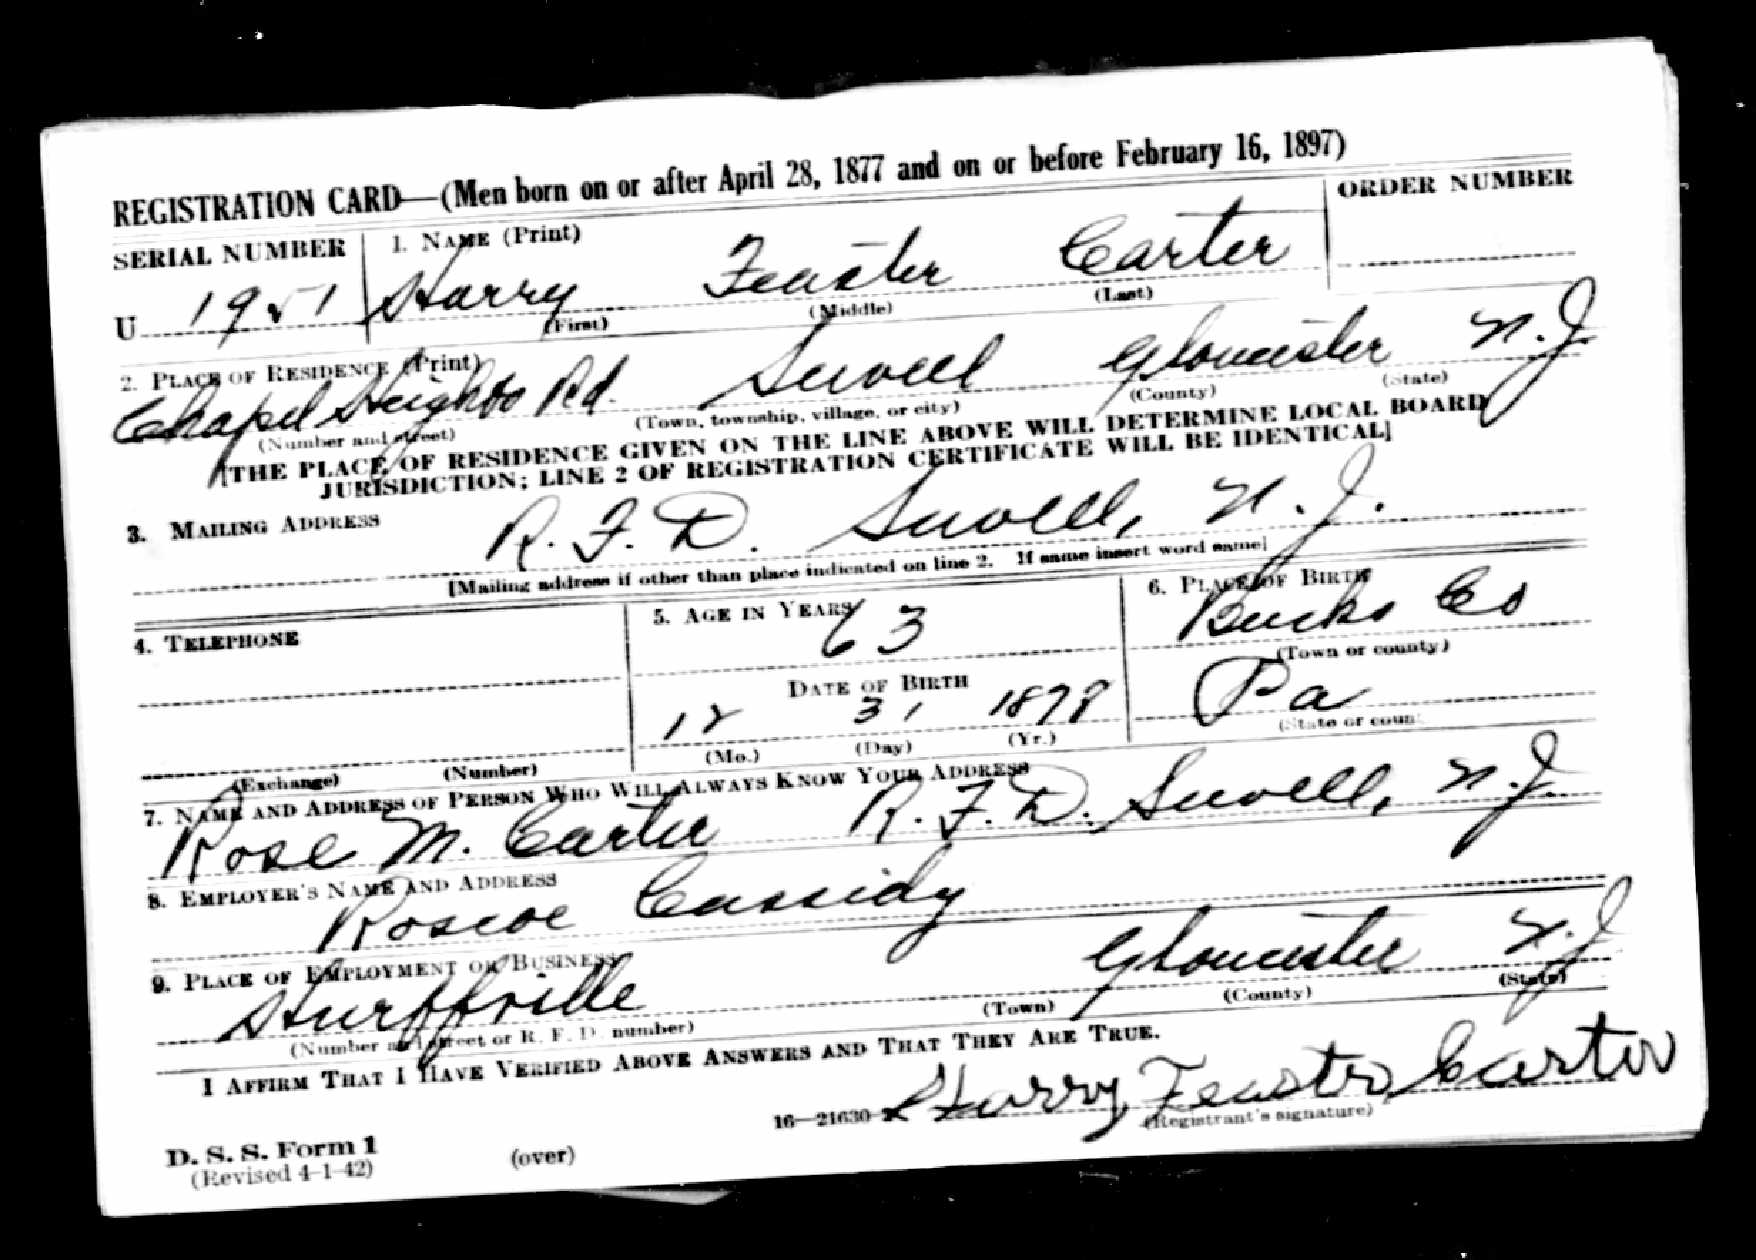 REGISTRATION CARD—(Men born on or after April 28, 1877 and on or before February 16, 1897)
SERIAL NUMBER 1. NAME (Print) ORDER NUMBER
U 1951 Harry Feaster Carter
(First) (Middle) (Last)
2. PLACE OF RESIDENCE (Print)
Chapel Heights Rd. Sewell Gloucester N.J.
(Number and street) (Town, township, village, or city) (County) (State)
[THE PLACE OF RESIDENCE GIVEN ON THE LINE ABOVE WILL DETERMINE LOCAL BOARD
JURISDICTION; LINE 2 OF REGISTRATION CERTIFICATE WILL BE IDENTICAL]
3. MAILING ADDRESS
R. F. D. Sewell, N. J.
[Mailing address if other than place indicated on line 2. If same insert word same]
4. TELEPHONE 5. AGE IN YEARS 6. PLACE OF BIRTH
63 Bucks Co
(Town or county)
DATE OF BIRTH Pa
12 31 1878
(Mo.) (Day) (Yr.) (State or coun
(Exchange) (Number)
7. NAME AND ADDRESS OF PERSON WHO WILL ALWAYS KNOW YOUR ADDRESS
Rose M. Carter R. F. D. Sewell, N.J.
8. EMPLOYER'S NAME AND ADDRESS
Roscoe Cassidy
9. PLACE OF EMPLOYMENT OR BUSINESS
Hurffville Gloucester N.J
(Number and street or R. F. D. number) (Town) (County) (State)
I AFFIRM THAT I HAVE VERIFIED ABOVE ANSWERS AND THAT THEY ARE TRUE.
16—21630 Harry Feaster Carter
(Registrant's signature)
D. S. S. Form 1
(Revised 4-1-42) (over)